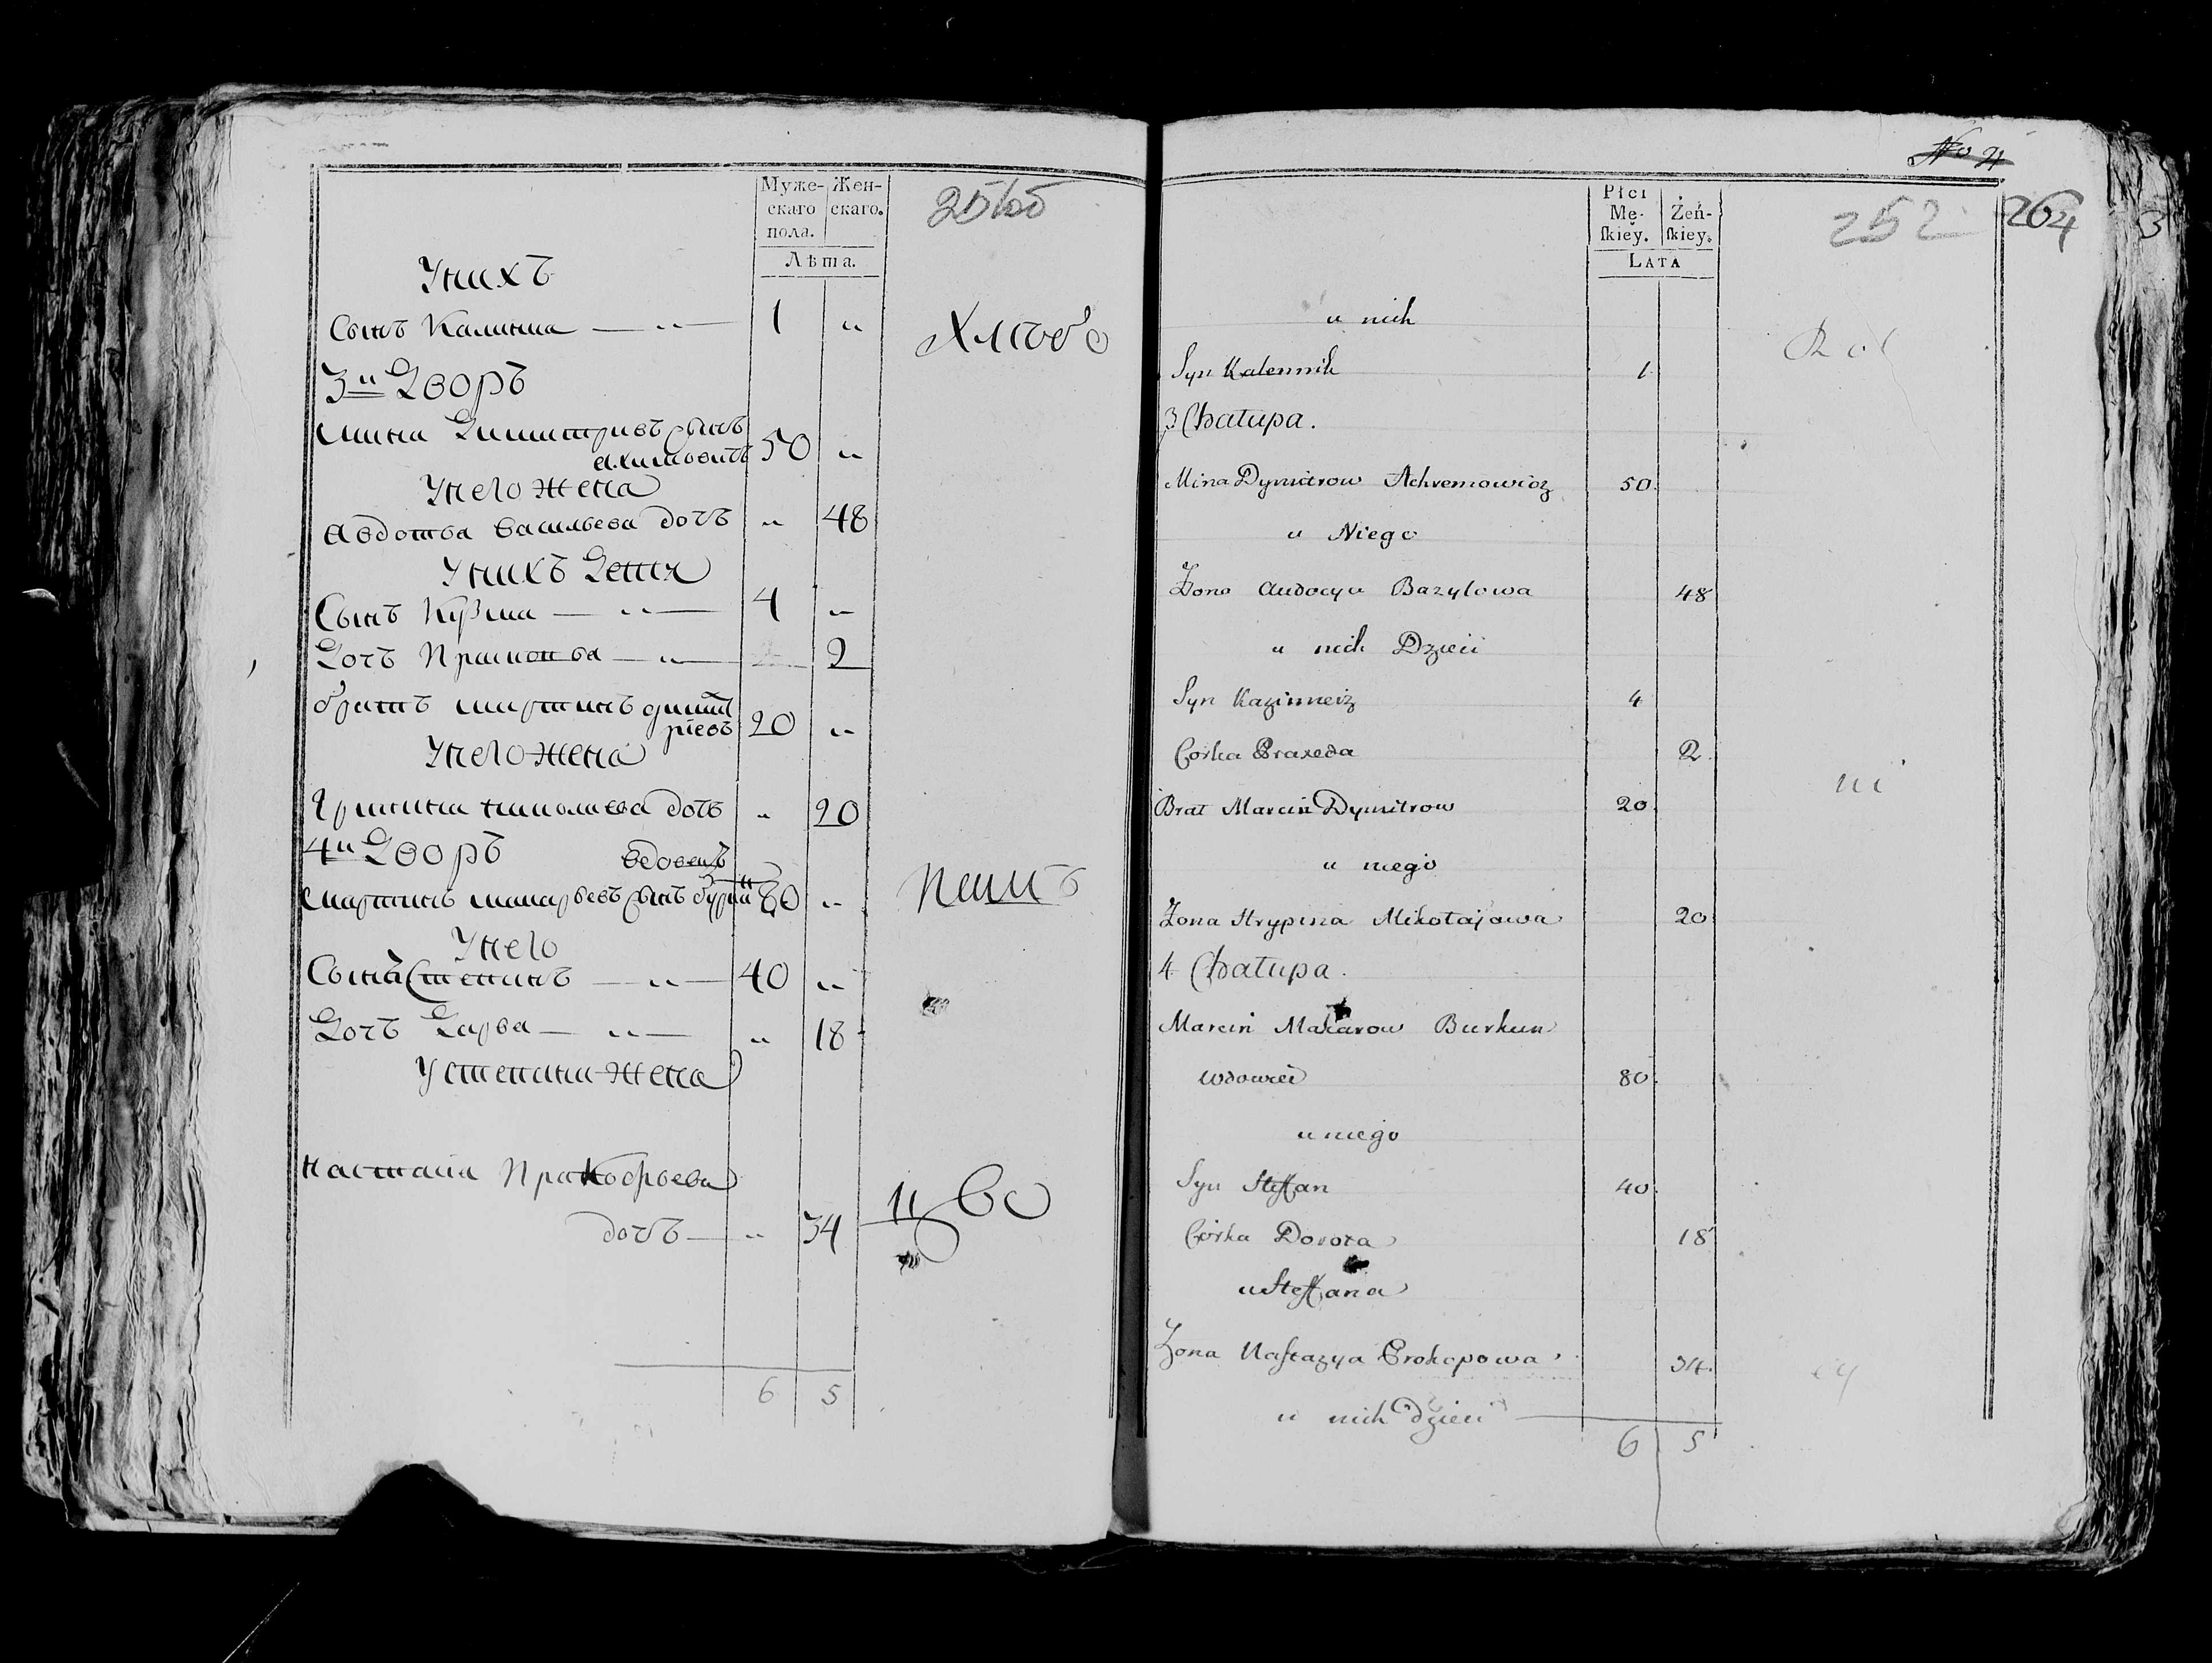 Муже-
скаго
пола.
Жен-
скаго.
Лѣта.
Унихъ
Сынъ Калиника — „ — 1 „
3й Дворъ
Мина Димитривъ сынъ
50 „
Унего жена
Авдотья Васильева дочь „ 48
Унихъ Дети
Сынъ Кузма — „ — 4 „
Дочь — „ — 2
братъ Мартинъ Дмит
ріевъ 20 „
Унего жена
дочь „ 20
4й Дворъ вдовецъ
Мартинъ Макарьевъ сынъ 80 „
Унего
Сынъ Степанъ — „ — 40 „
Дочь Дарья — „ — „ 18
У степана жена
Настасия
дочь — „ 34
6 5
No 4
Płci
Mę-
ſkiey.
Żeń-
ſkiey.
LATA
252
264
3
u nich
Syn Kalennik 1
3 Chatupa.
Mina Dymitrow Achremowicz 50.
u Niego
Zona Audocya Bazylowa 48
u nich Dzieci
Syn Kazimierz 4
Corka Praxeda 2.
Brat Marcin Dymitrow 20.
u niego
Zona Hrypina Mikołajowa 20
4 Chatupa.
Marcin Makarow Burkun
wdowiec 80.
u niego
Syn Steffan 40.
Córka Dorota 18
u Steffana
Zona Naſtazya Prokopowa 34.
u nich dzieci
6 5